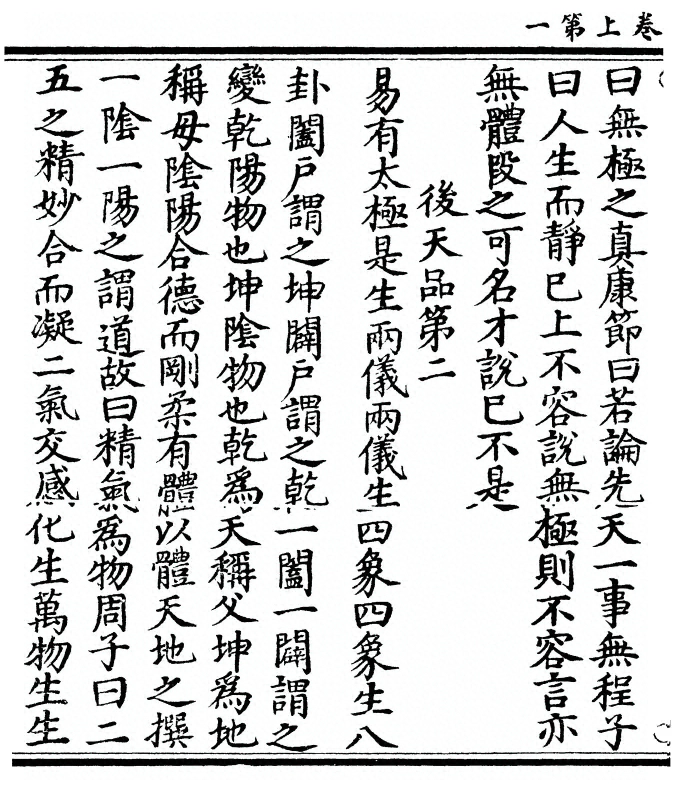 卷上第一
曰無極之真康節曰若論先天一事無程子
曰人生而靜已上不容說無極則不容言亦
無體段之可名才說已不是
後天品第二
易有太極是生兩儀兩儀生四象四象生八
卦闔戶謂之坤闢戶謂之乾一闔一闢謂之
變乾陽物也坤陰物也乾爲天稱父坤爲地
稱母陰陽合德而剛柔有體以體天地之撰
一陰一陽之謂道故曰精氣爲物周子曰二
五之精妙合而凝二氣交感化生萬物生生